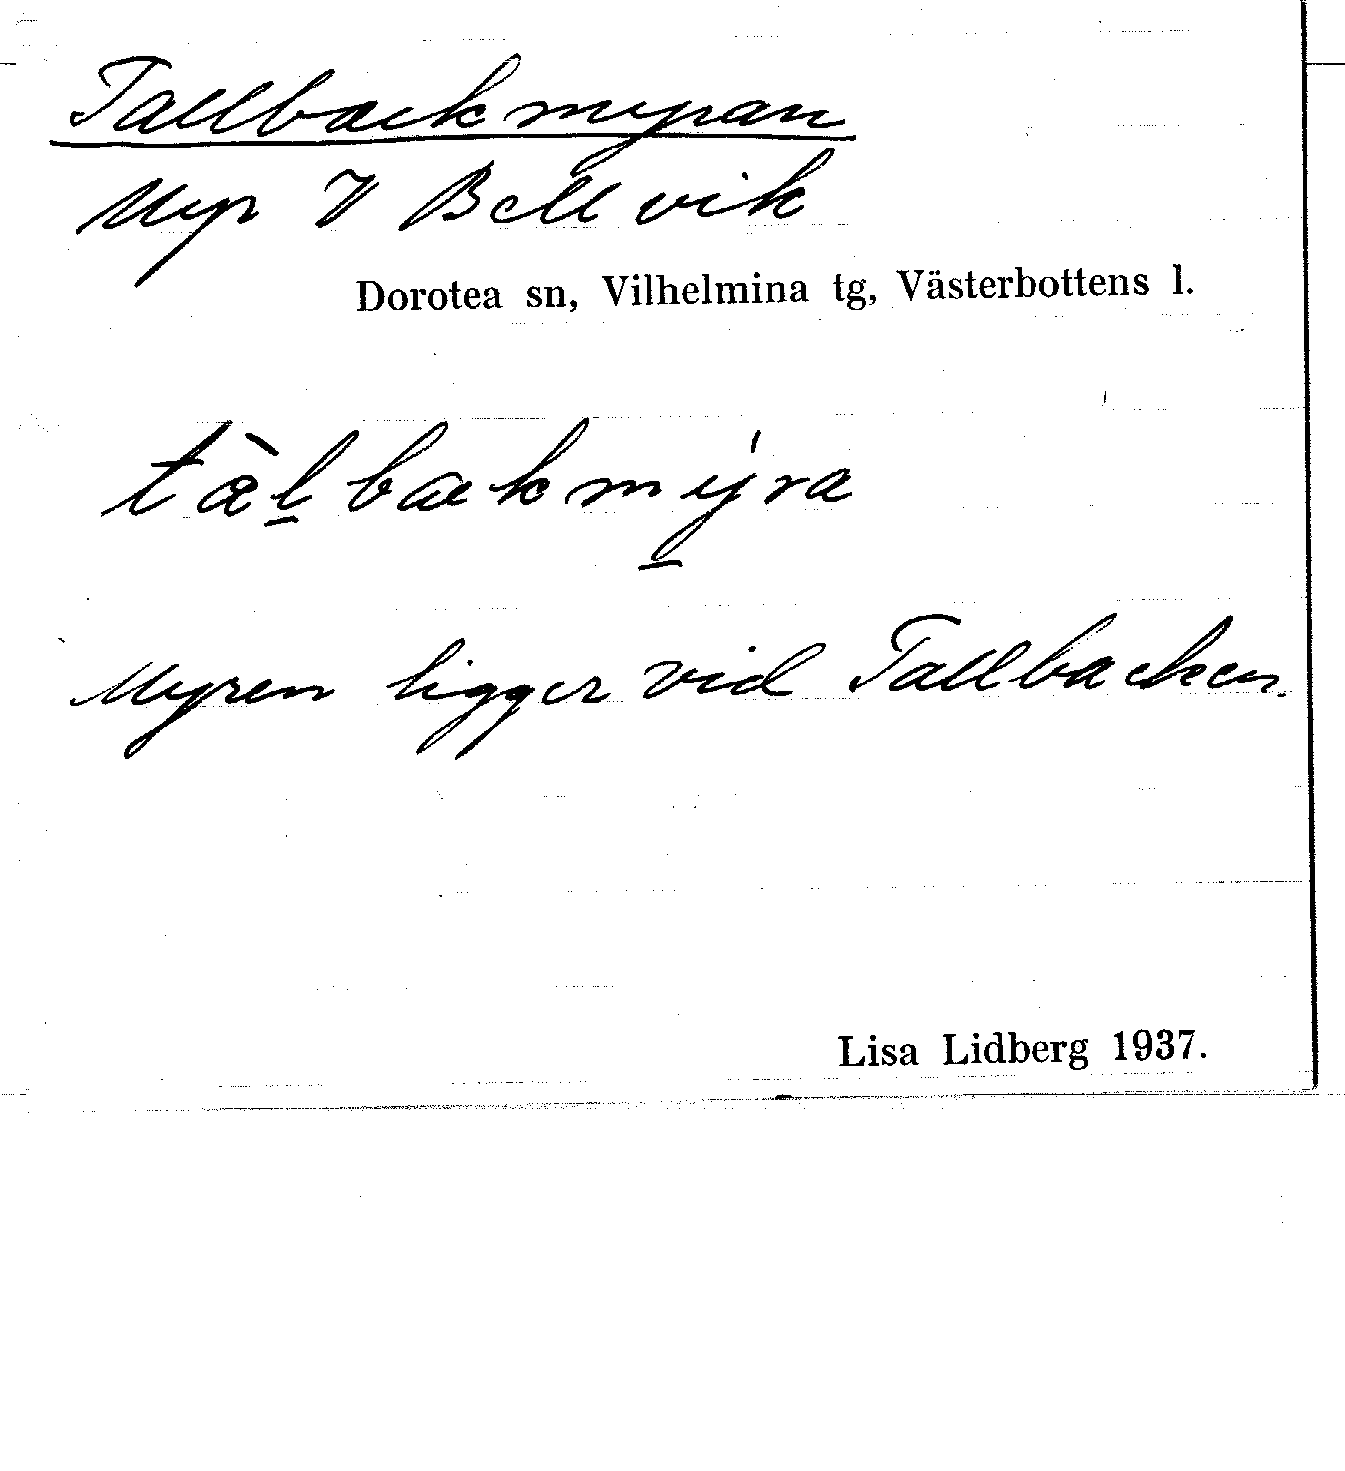 Tallbackmyran
Myr V Bellvik
Dorotea sn, Vilhelmina tg, Västerbottens l.
tàl̲bakmý̲ra
Myren ligger vid Tallbacken.
Lisa Lidberg 1937.